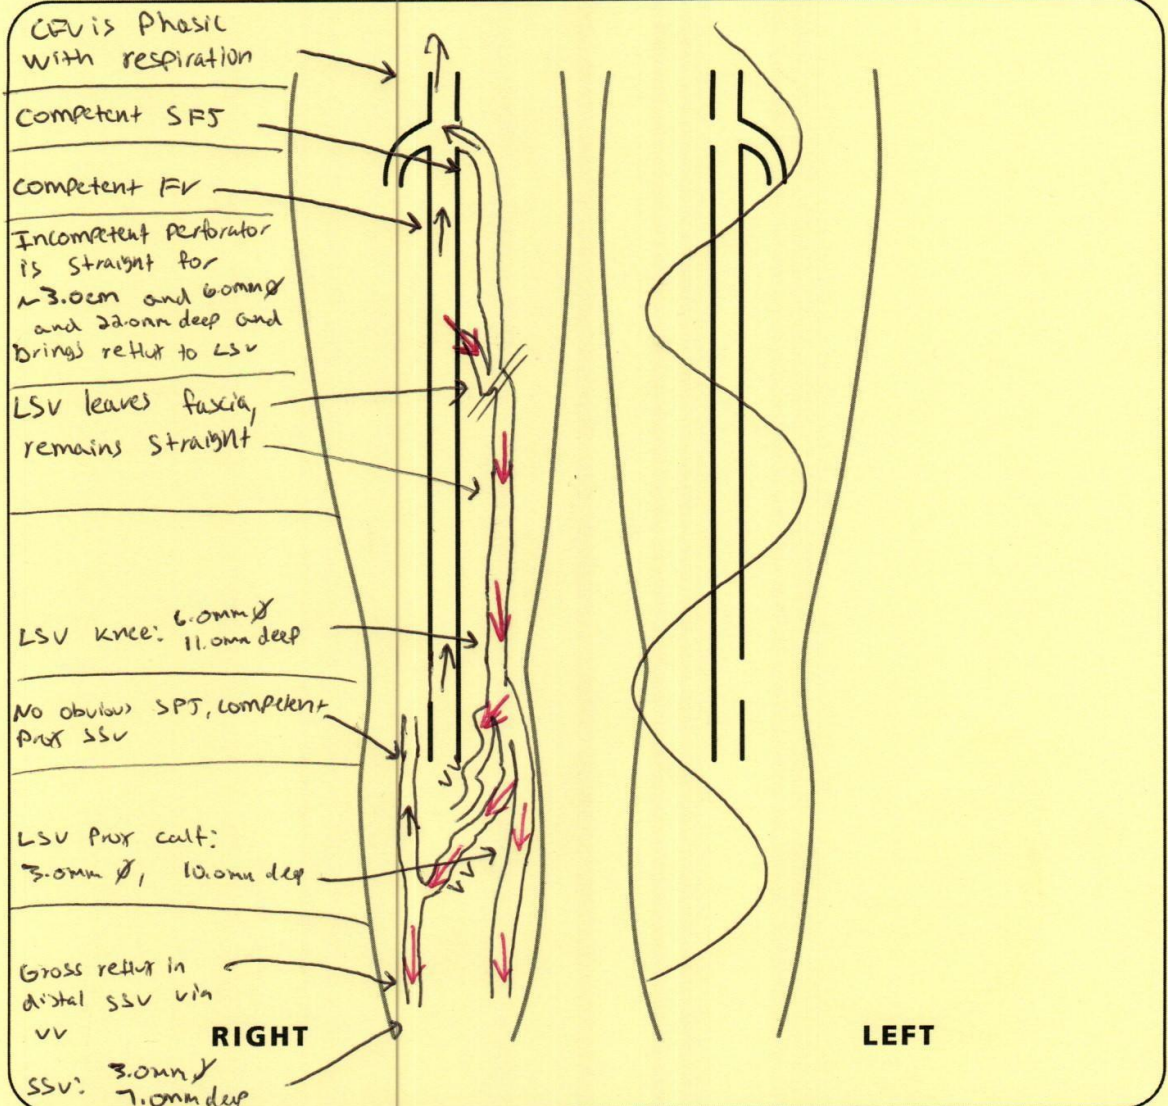 CFV is Phasic
with respiration
Competent SFJ
Competent FV
Incompetent Perforator
is straight for
~3.0cm and 6.0mmØ
and 22.0mm deep and
brings reflux to LSV
LSV leaves fascia,
remains straight
LSV Knee: 6.0mmØ
11.0mm deep
No obvious SPJ, competent
Prox SSV
VV
LSV Prox calf:
3.0mm Ø, 10.0mm deep
VV
Gross reflux in
distal SSV via
VV
RIGHT
LEFT
SSV: 3.0mmØ
7.0mm deep